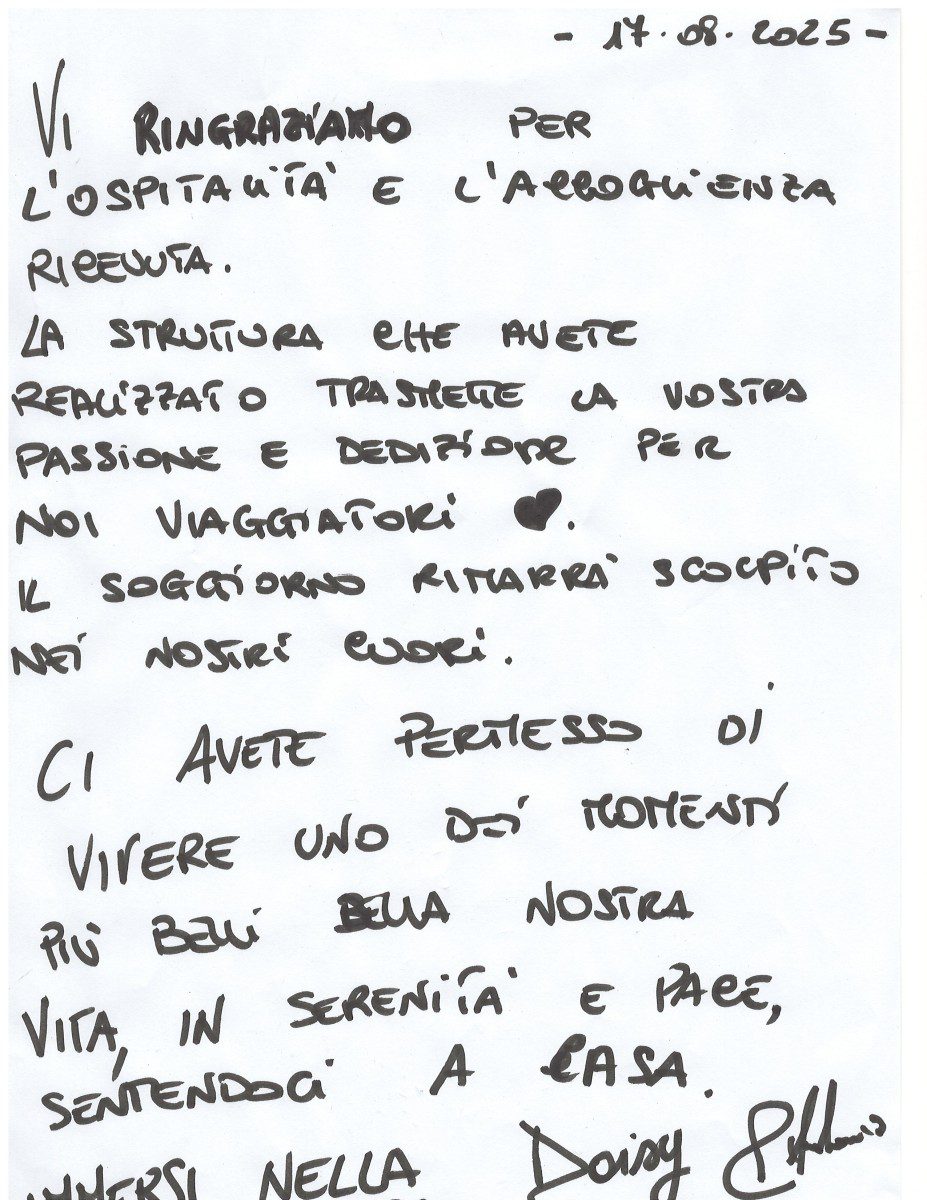 - 17.08.2025 -
VI RINGRAZIAMO PER
L'OSPITALITÀ E L'ACCOGLIENZA
RICEVUTA.
LA STRUTTURA CHE AVETE
REALIZZATO TRASMETTE LA VOSTRA
PASSIONE E DEDIZIONE PER
NOI VIAGGIATORI ♥.
IL SOGGIORNO RIMARRÀ SCOLPITO
NEI NOSTRI CUORI.
CI AVETE PERMESSO DI
VIVERE UNO DEI MOMENTI
PIÙ BELLI DELLA NOSTRA
VITA, IN SERENITÀ E PACE,
SENTENDOCI A CASA.
IMMERSI NELLA
Daisy